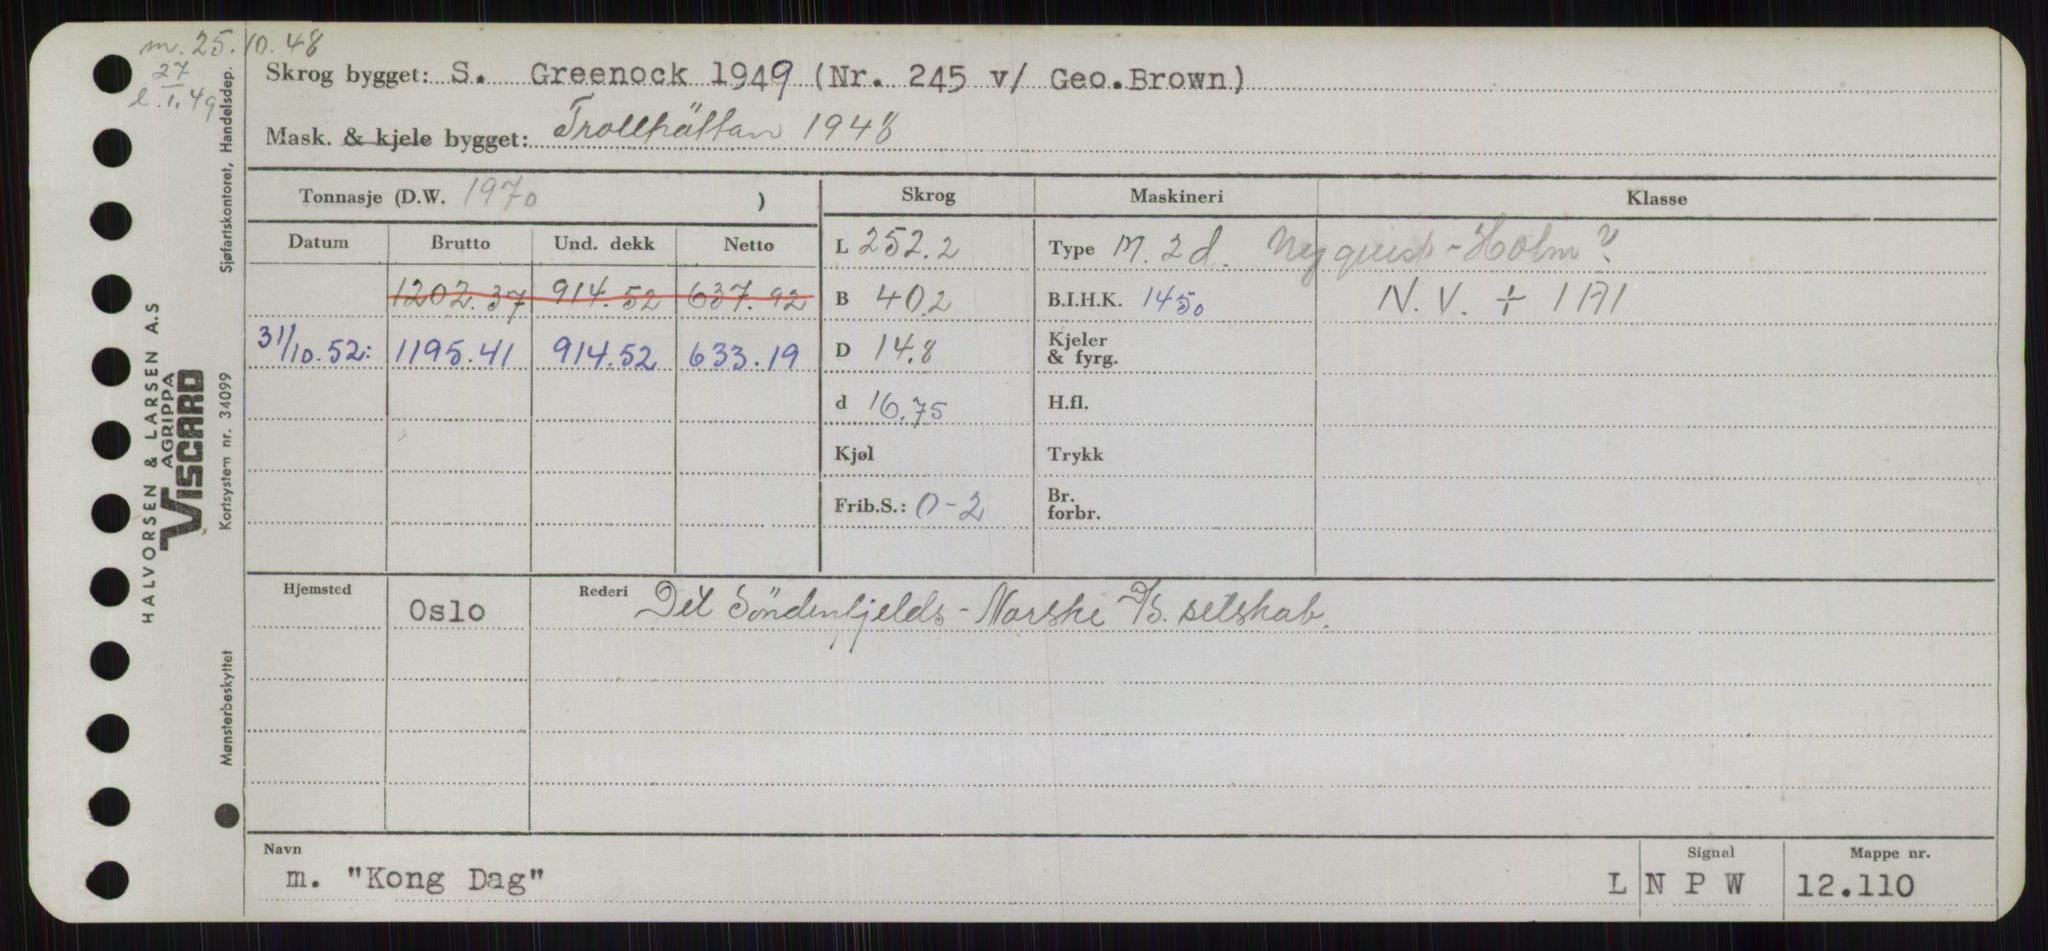 m. 25.10.48
27
l. I. 49
Skrog bygget: S. Greenock 1949 (Nr. 245 v/ Geo.Brown)
Mask. & kjele bygget: Trollhättan 1948
Tonnasje (D.W. 1970 )
Skrog
Maskineri
Klasse
Datum
Brutto
Und. dekk
Netto
L 252.2
Type M. 2 d. Nyquist-Holm?
1202.37 914.52 637.92
B 40.2
B.I.H.K. 1450
N.V. + 1A1
31/10.52: 1195.41 914.52 633.19
D 14.8
Kjeler
& fyrg.
d 16.75
H.fl.
Kjøl
Trykk
Frib.S.: 0-2
Br.
forbr.
Hjemsted
Oslo
Rederi Det Söndenfjelds-Norske D/S. selskab.
Navn
Signal
Mappe nr.
m. "Kong Dag"
L N P W
12.110
HALVORSEN & LARSEN A.S
AGRIPPA
VISCARD
Mønsterbeskyttet
Kortsystem nr. 34099
Sjøfartskontoret, Handelsdep.